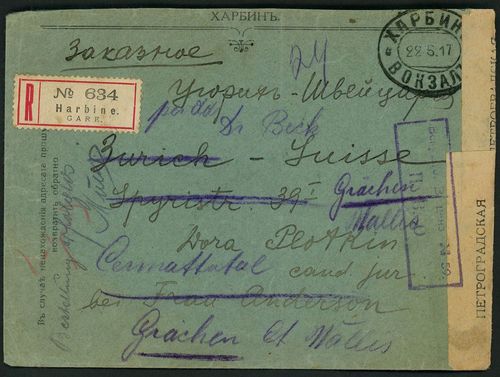 ХАРБИНЪ.
Заказное
24
ХАРБИН
22 5.17
ВОКЗАЛ
R
№ 634
Harbine.
GARE.
Цюрихъ - Швейцарія
Dr Beck
Zurich - Suisse
39 I Grächen
Wallis
Dora Plotkin
Zermattatal cand. jur
bei Frau Anderson
Grächen Ct Wallis
Въ случаѣ ненахожденія адресата прошу
возвратить обратно
ПЕТРОГРАДСКАЯ